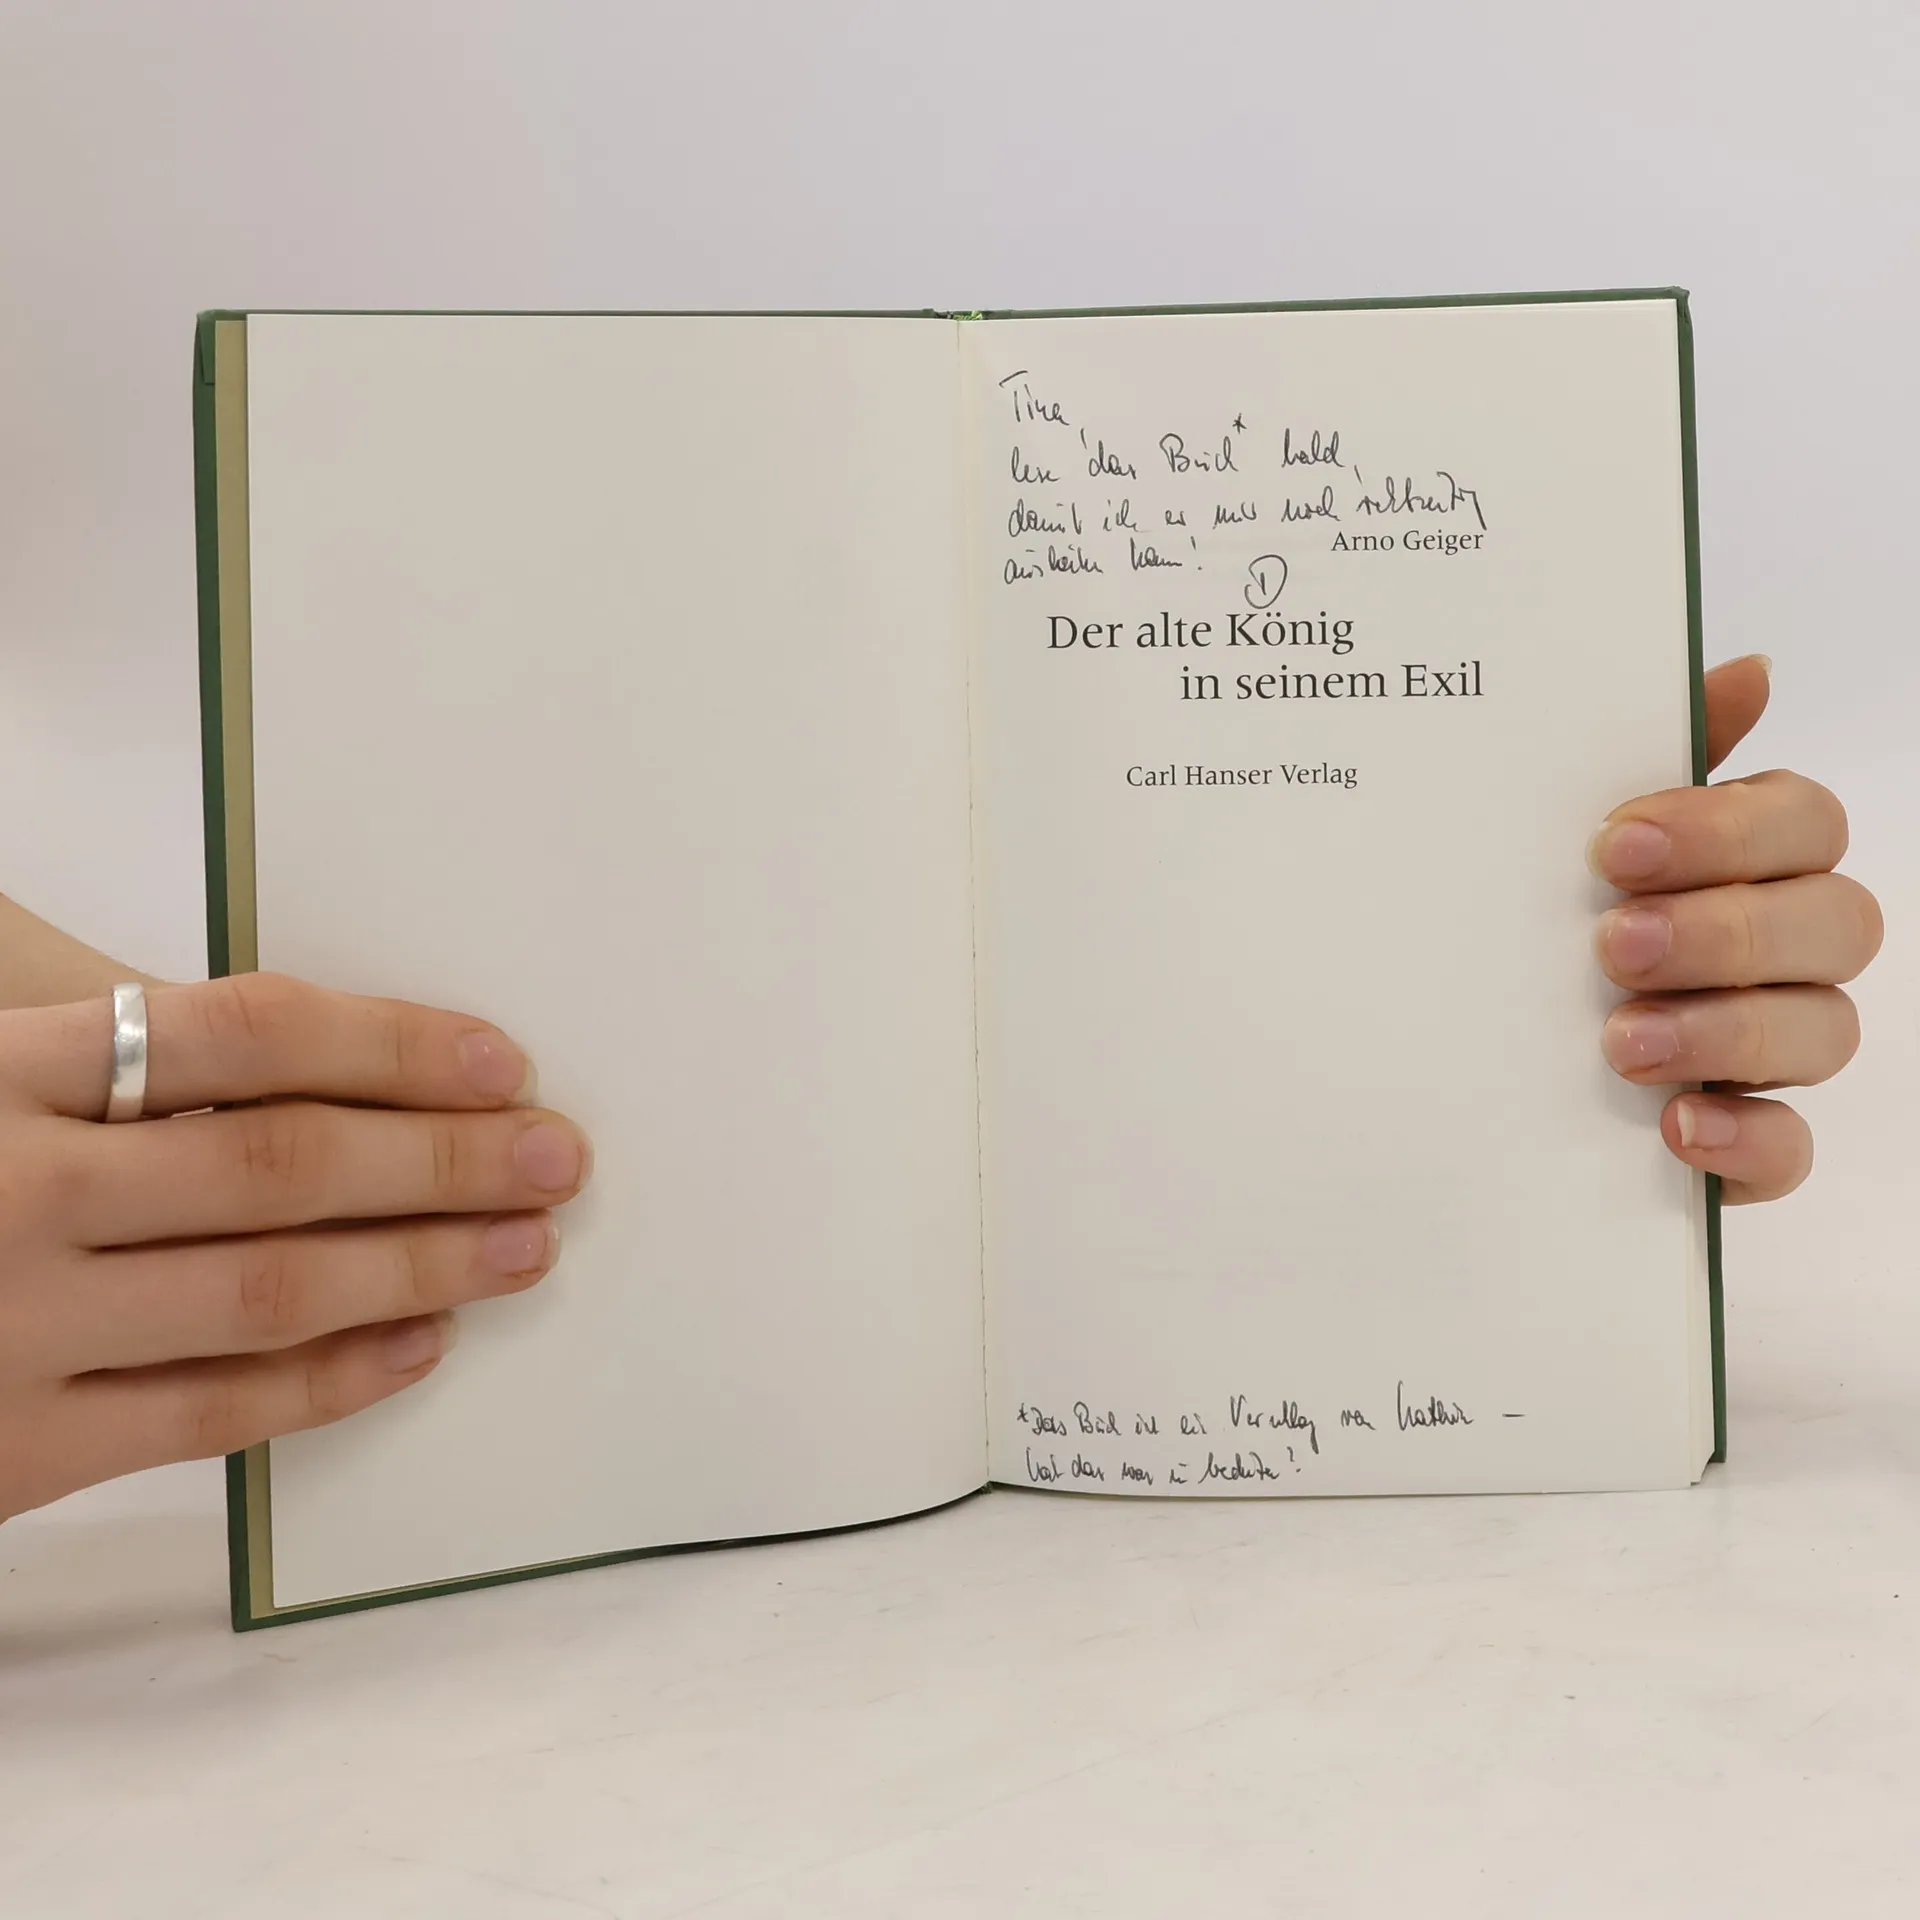 Tina,
lese das Buch* bald,
damit ich es mir noch rechtzeitig
Arno Geiger
ausleihen kann!
D
Der alte König
in seinem Exil
Carl Hanser Verlag
*Das Buch ist ein Vorschlag von Kathrin –
hat das was zu bedeuten?